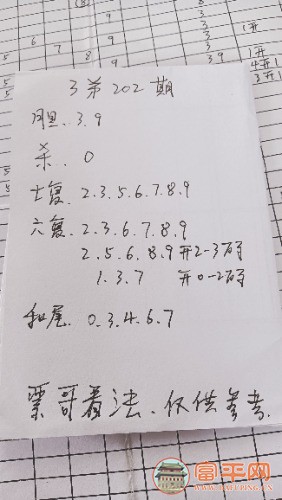 3 第202期
胆.3.9
杀.0
七复.2.3.5.6.7.8.9
六复.2.3.6.7.8.9
2.5.6.8.9 开2-3码
1.3.7 开0-2码
和尾.0.3.4.6.7
票哥看法.仅供参考.
富平网